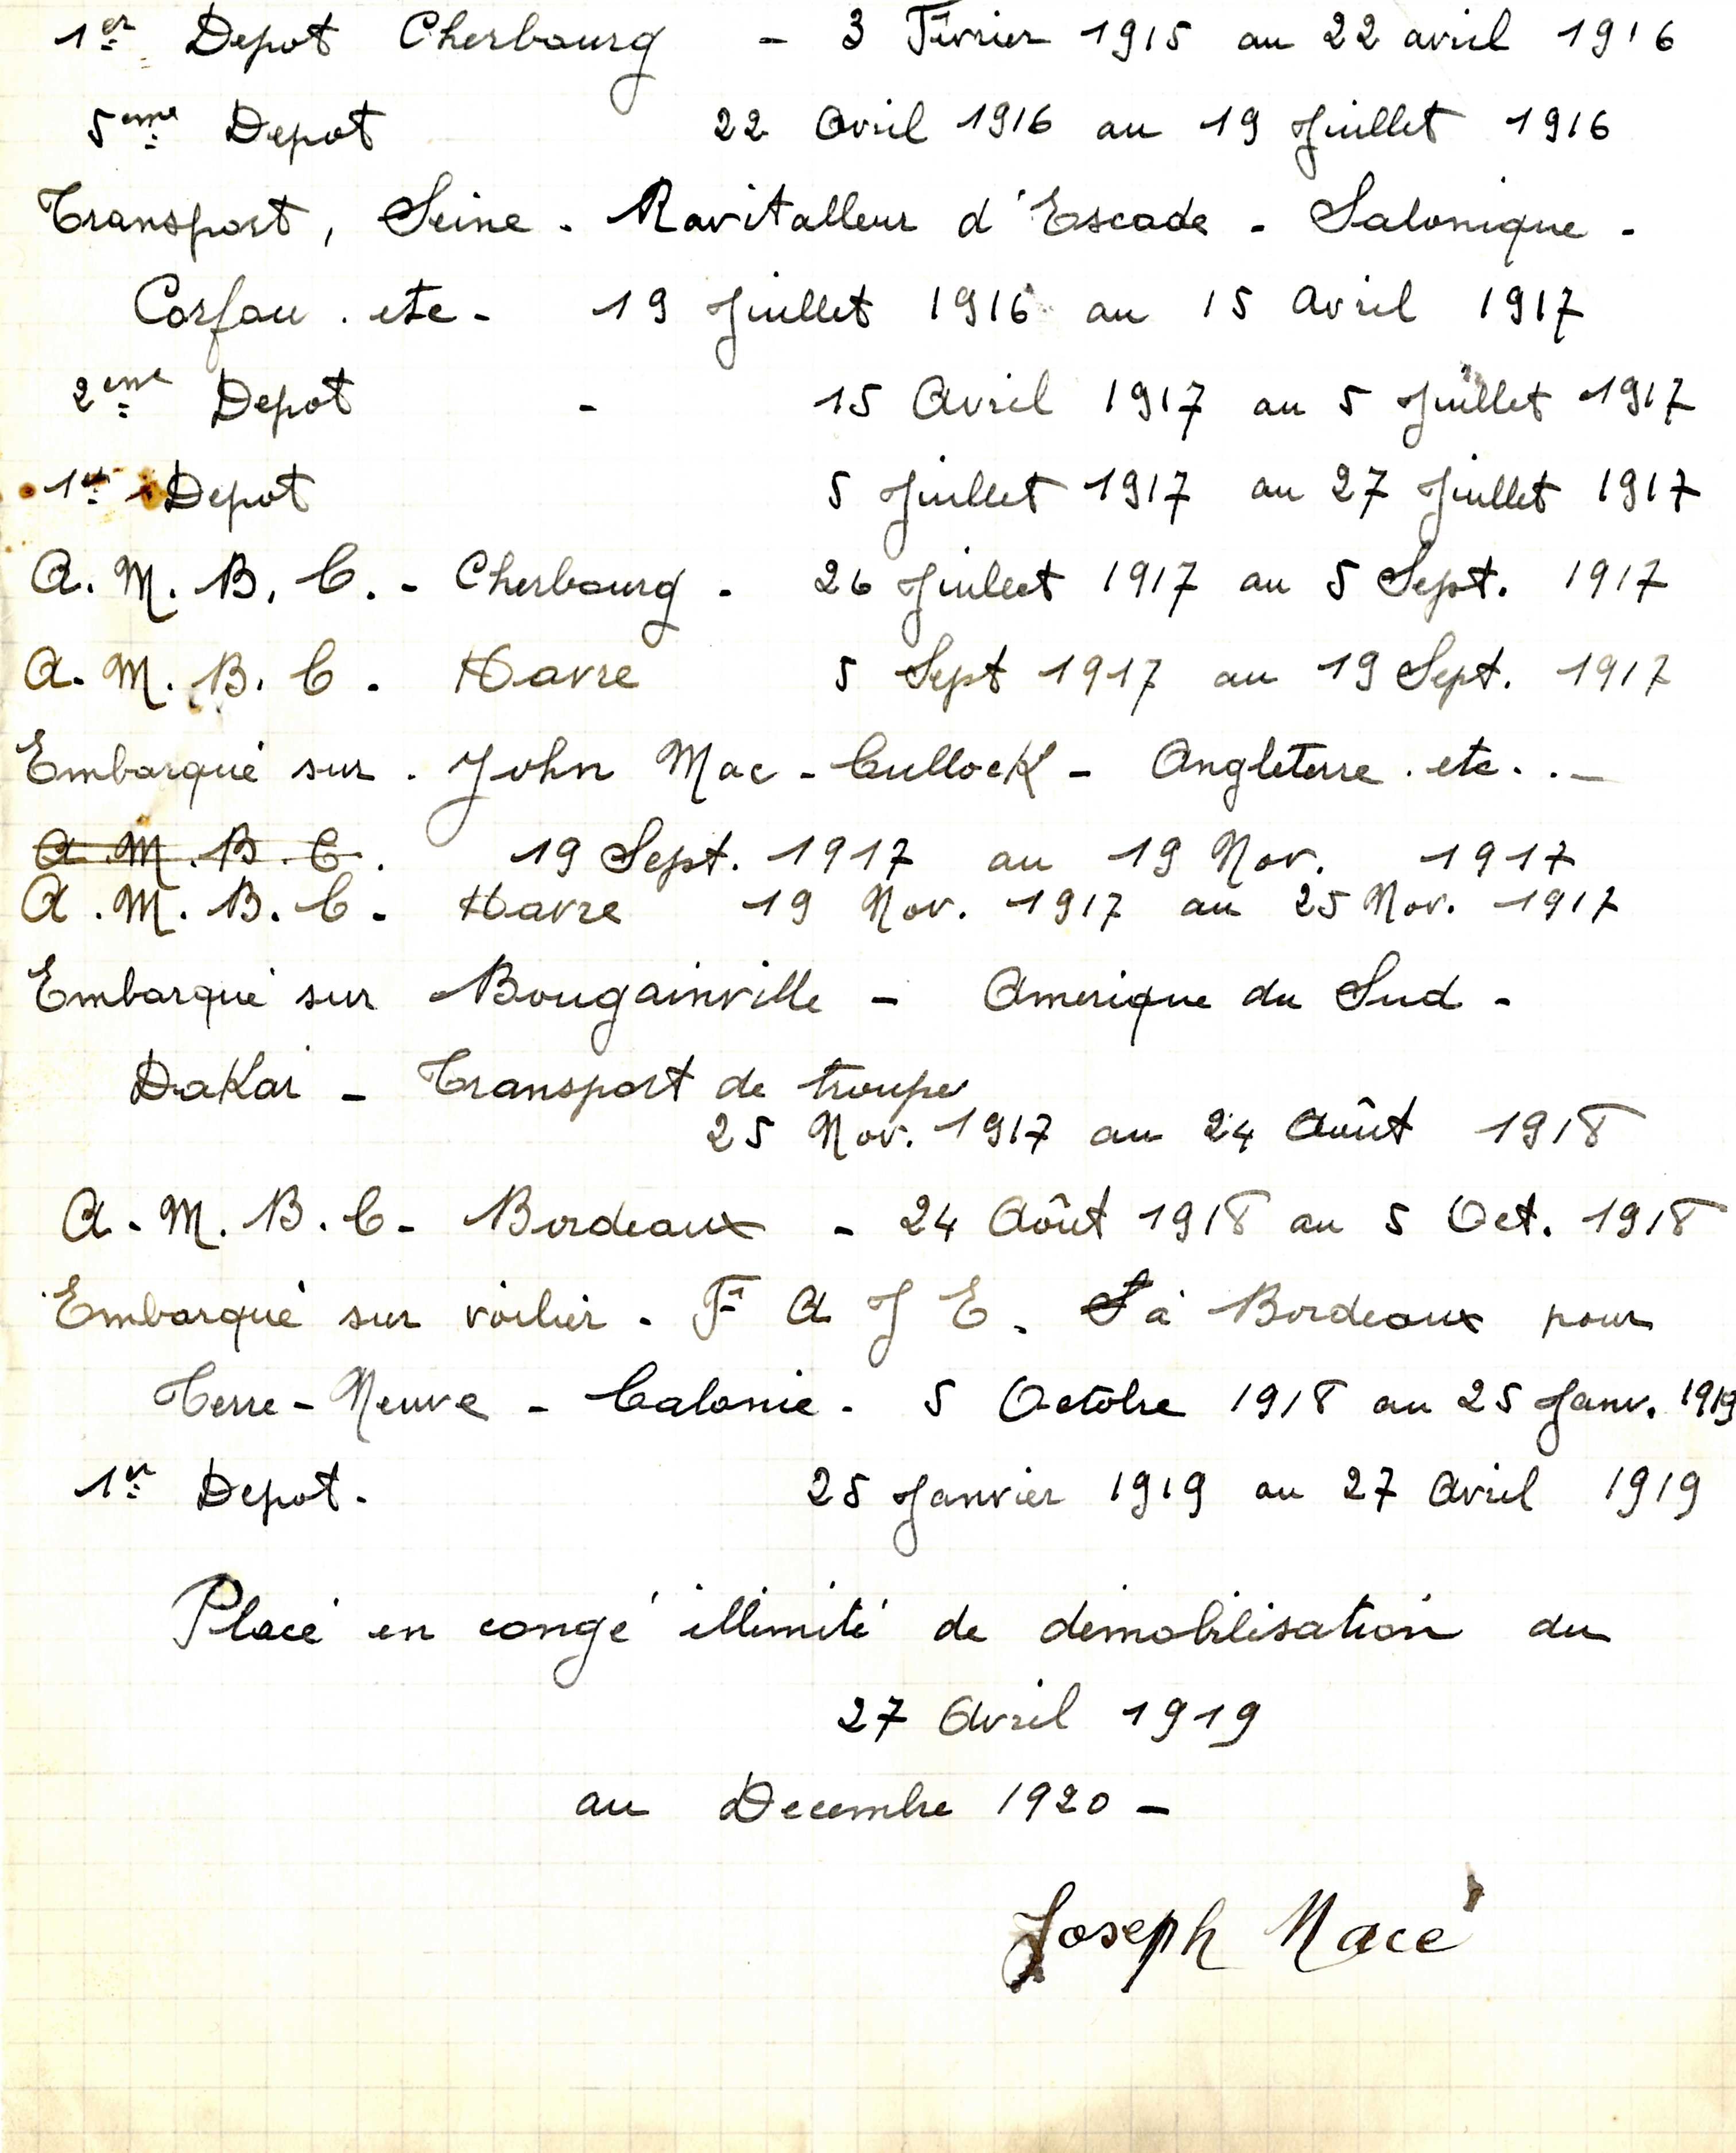 1er Depot Cherbourg - 3 Février 1915 au 22 avril 1916
5ème Depot 22 Avril 1916 au 19 Juillet 1916
Transport, Seine. Ravitalleur d'Escade - Salonique -
Corfou. etc - 19 Juillet 1916 au 15 Avril 1917
2ème Depot - 15 Avril 1917 au 5 Juillet 1917
1er Depot 5 Juillet 1917 au 27 Juillet 1917
A. M. B. C. - Cherbourg - 26 Juillet 1917 au 5 Sept. 1917
A. M. B. C. Havre 5 Sept 1917 au 19 Sept. 1917
Embarqué sur. John Mac-Cullock - Angleterre. etc.. -
A. M. B. C. 19 Sept. 1917 au 19 Nov. 1917
A. M. B. C. Havre 19 Nov. 1917 au 25 Nov. 1917
Embarqué sur Bougainville - Amerique du Sud -
Dakar - Transport de troupes
25 Nov. 1917 au 24 Août 1918
A. M. B. C - Bordeaux - 24 Août 1918 au 5 Oct. 1918
Embarqué sur voilier. F A J E. à Bordeaux pour
Terre-Neuve - Calonie - 5 Octobre 1918 au 25 Janv. 1919
1er Depot. 25 Janvier 1919 au 27 Avril 1919
Placé en congé illimité de démobilisation du
27 Avril 1919
au Decembre 1920 -
Joseph Macé